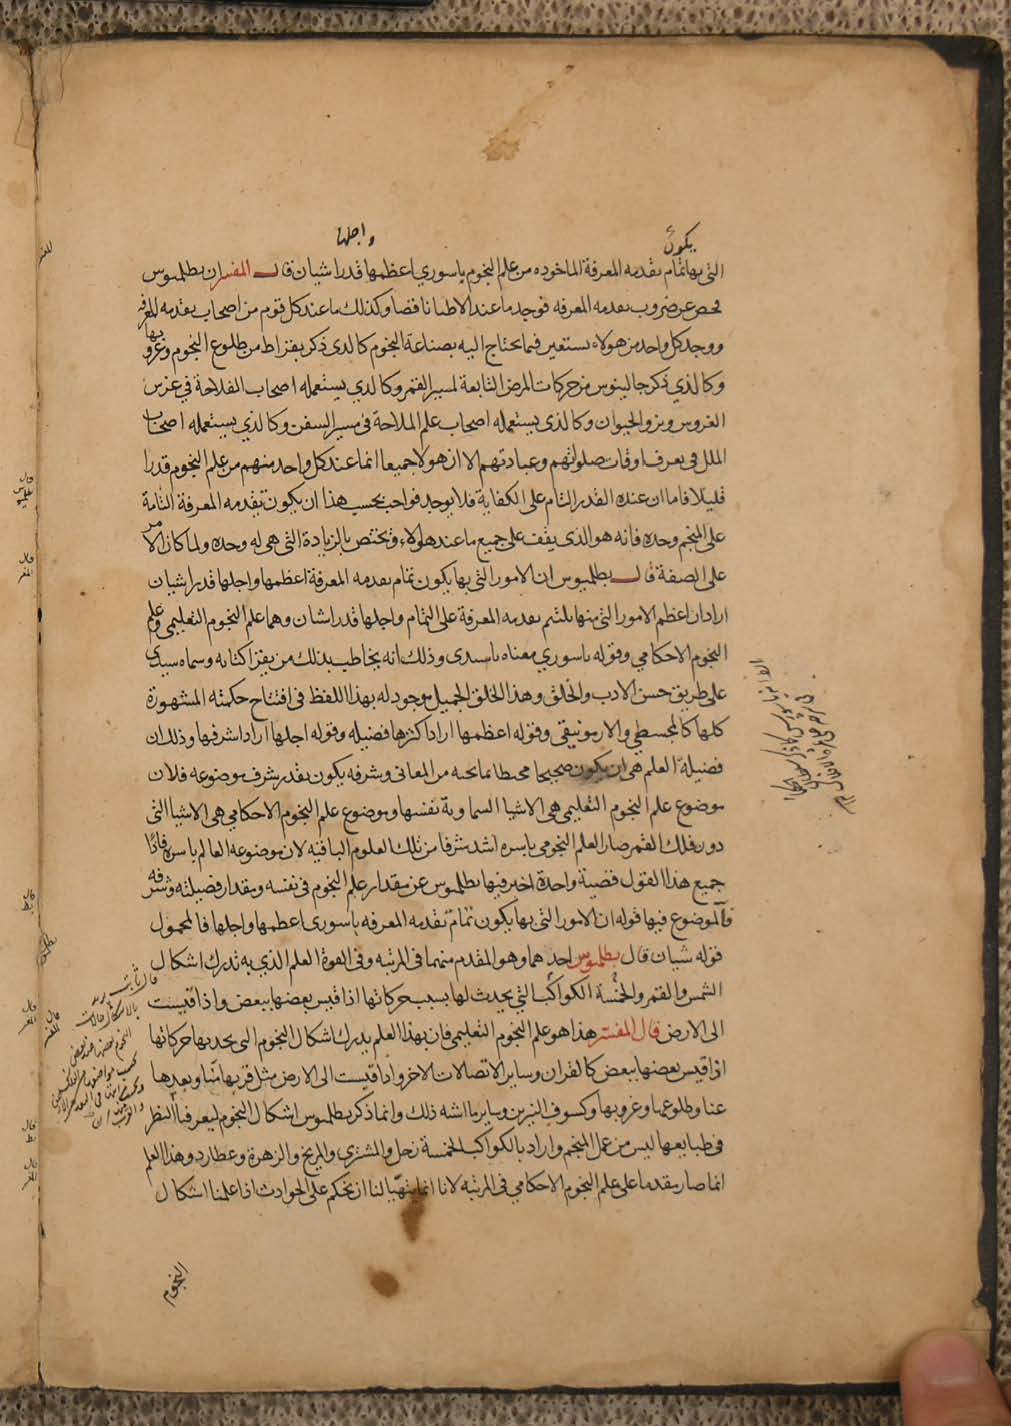 يكون
واجلها
التي بها تمام تقدمة المعرفة الماخوذه من علم النجوم ياسوري اعظمها قدرا شيان قال المفسر ان بطلميوس
فحص عن ضروب تقدمه المعرفه فوجد ما عند الاطبا ناقصا وكذلك ما عند كل قوم من اصحاب تقدمه المعرفه
ووجد كل واحد من هولاء يستعين فيما يحتاج اليه بصناعة النجوم كالذي ذكر بقراط من طلوع النجوم وغروبها
وكالذي ذكر جالينوس من حركات المرض التابعة لمسير القمر وكالذي يستعمله اصحاب الفلاحة في غرس
الغروس ونزو الحيوان وكالذي يستعمله اصحاب علم الملاحة في مسير السفن وكالذي يستعمله اصحاب
الملل في تعرف اوقات صلواتهم وعباداتهم الا ان هولا جميعا انما عند كل واحد منهم من علم النجوم قدرا
قليلا فاما ان عنده القدر التام على الكفاية فلا يوجد فواجب بحسب هذا ان يكون تقدمه المعرفة التامة
على المنجم وحده فانه هو الذي يقف على جميع ما عند هولاء ويختص بالزيادة التي هي له وحده ولما كان الامر
على الصفة قال بطلميوس ان الامور التي بها يكون تمام تقدمه المعرفة اعظمها واجلها قدرا شيان
اراد ان اعظم الامور التي منها يلتئم تقدمه المعرفة على التمام واجلها قدرا شيان وهما علم النجوم التعليمي وعلم
النجوم الاحكامي وقوله ياسوري معناه ياسيدي وذلك انه يخاطب بذلك من يقرا كتابه وسماه سيدي
على طريق حسن الادب والخلق وهذا الخلق الجميل موجود له بهذا اللفظ في افتتاح حكمته المشهورة
كلها كالمجسطي والارمونيقي وقوله اعظمها اراد اكثرها فضيله وقوله اجلها اراد اشرفها وذلك ان
فضيلة العلم هي ان يكون صحيحا محيطا بما تحته من المعاني وشرفه يكون بقدر شرف موضوعه فلان
موضوع علم النجوم التعليمي هي الاشيا السماوية نفسها وموضوع علم النجوم الاحكامي هي الاشيا التي
دون فلك القمر صار العلم النجومي باسره اشد شرفا من تلك العلوم الباقيه لان موضوعه العالم باسره فاذا
جميع هذا القول قضية واحدة اخبر فيها بطلميوس عن مقدار علم النجوم في نفسه ومقدار فضيلته وشرفه
فالموضوع فيها قوله ان الامور التي بها يكون تمام تقدمه المعرفه ياسوري اعظمها واجلها فالمحمول
قوله شيان قال بطلميوس احدهما وهو المقدم منهما في المرتبه وفي القوة العلم الذي به تدرك اشكال
الشمس والقمر والخمسة الكواكب التي يحدث لها بسبب حركاتها اذا قيس بعضها ببعض واذا قيست
الى الارض قال المفسر هذا هو علم النجوم التعليمي فان بهذا العلم يدرك اشكال النجوم التي يحدثها حركاتها
اذا قيس بعضها ببعض كالقران وساير الاتصالات الاخر واذا قيست الى الارض مثل قربها منا وبعدها
عنا وطلوعها وغروبها وكسوف النيرين وساير ما اشبه ذلك وانما ذكر بطلميوس اشكال النجوم ليعرفنا النظر
في طبايعها ليس من عمل المنجم واراد بالكواكب الخمسة زحل والمشتري والمريخ والزهرة وعطارد وهذا العلم
انما صار مقدما على علم النجوم الاحكامي في المرتبه لانا انما يتهيا لنا ان نحكم على الحوادث اذا علمنا اشكال
النجوم